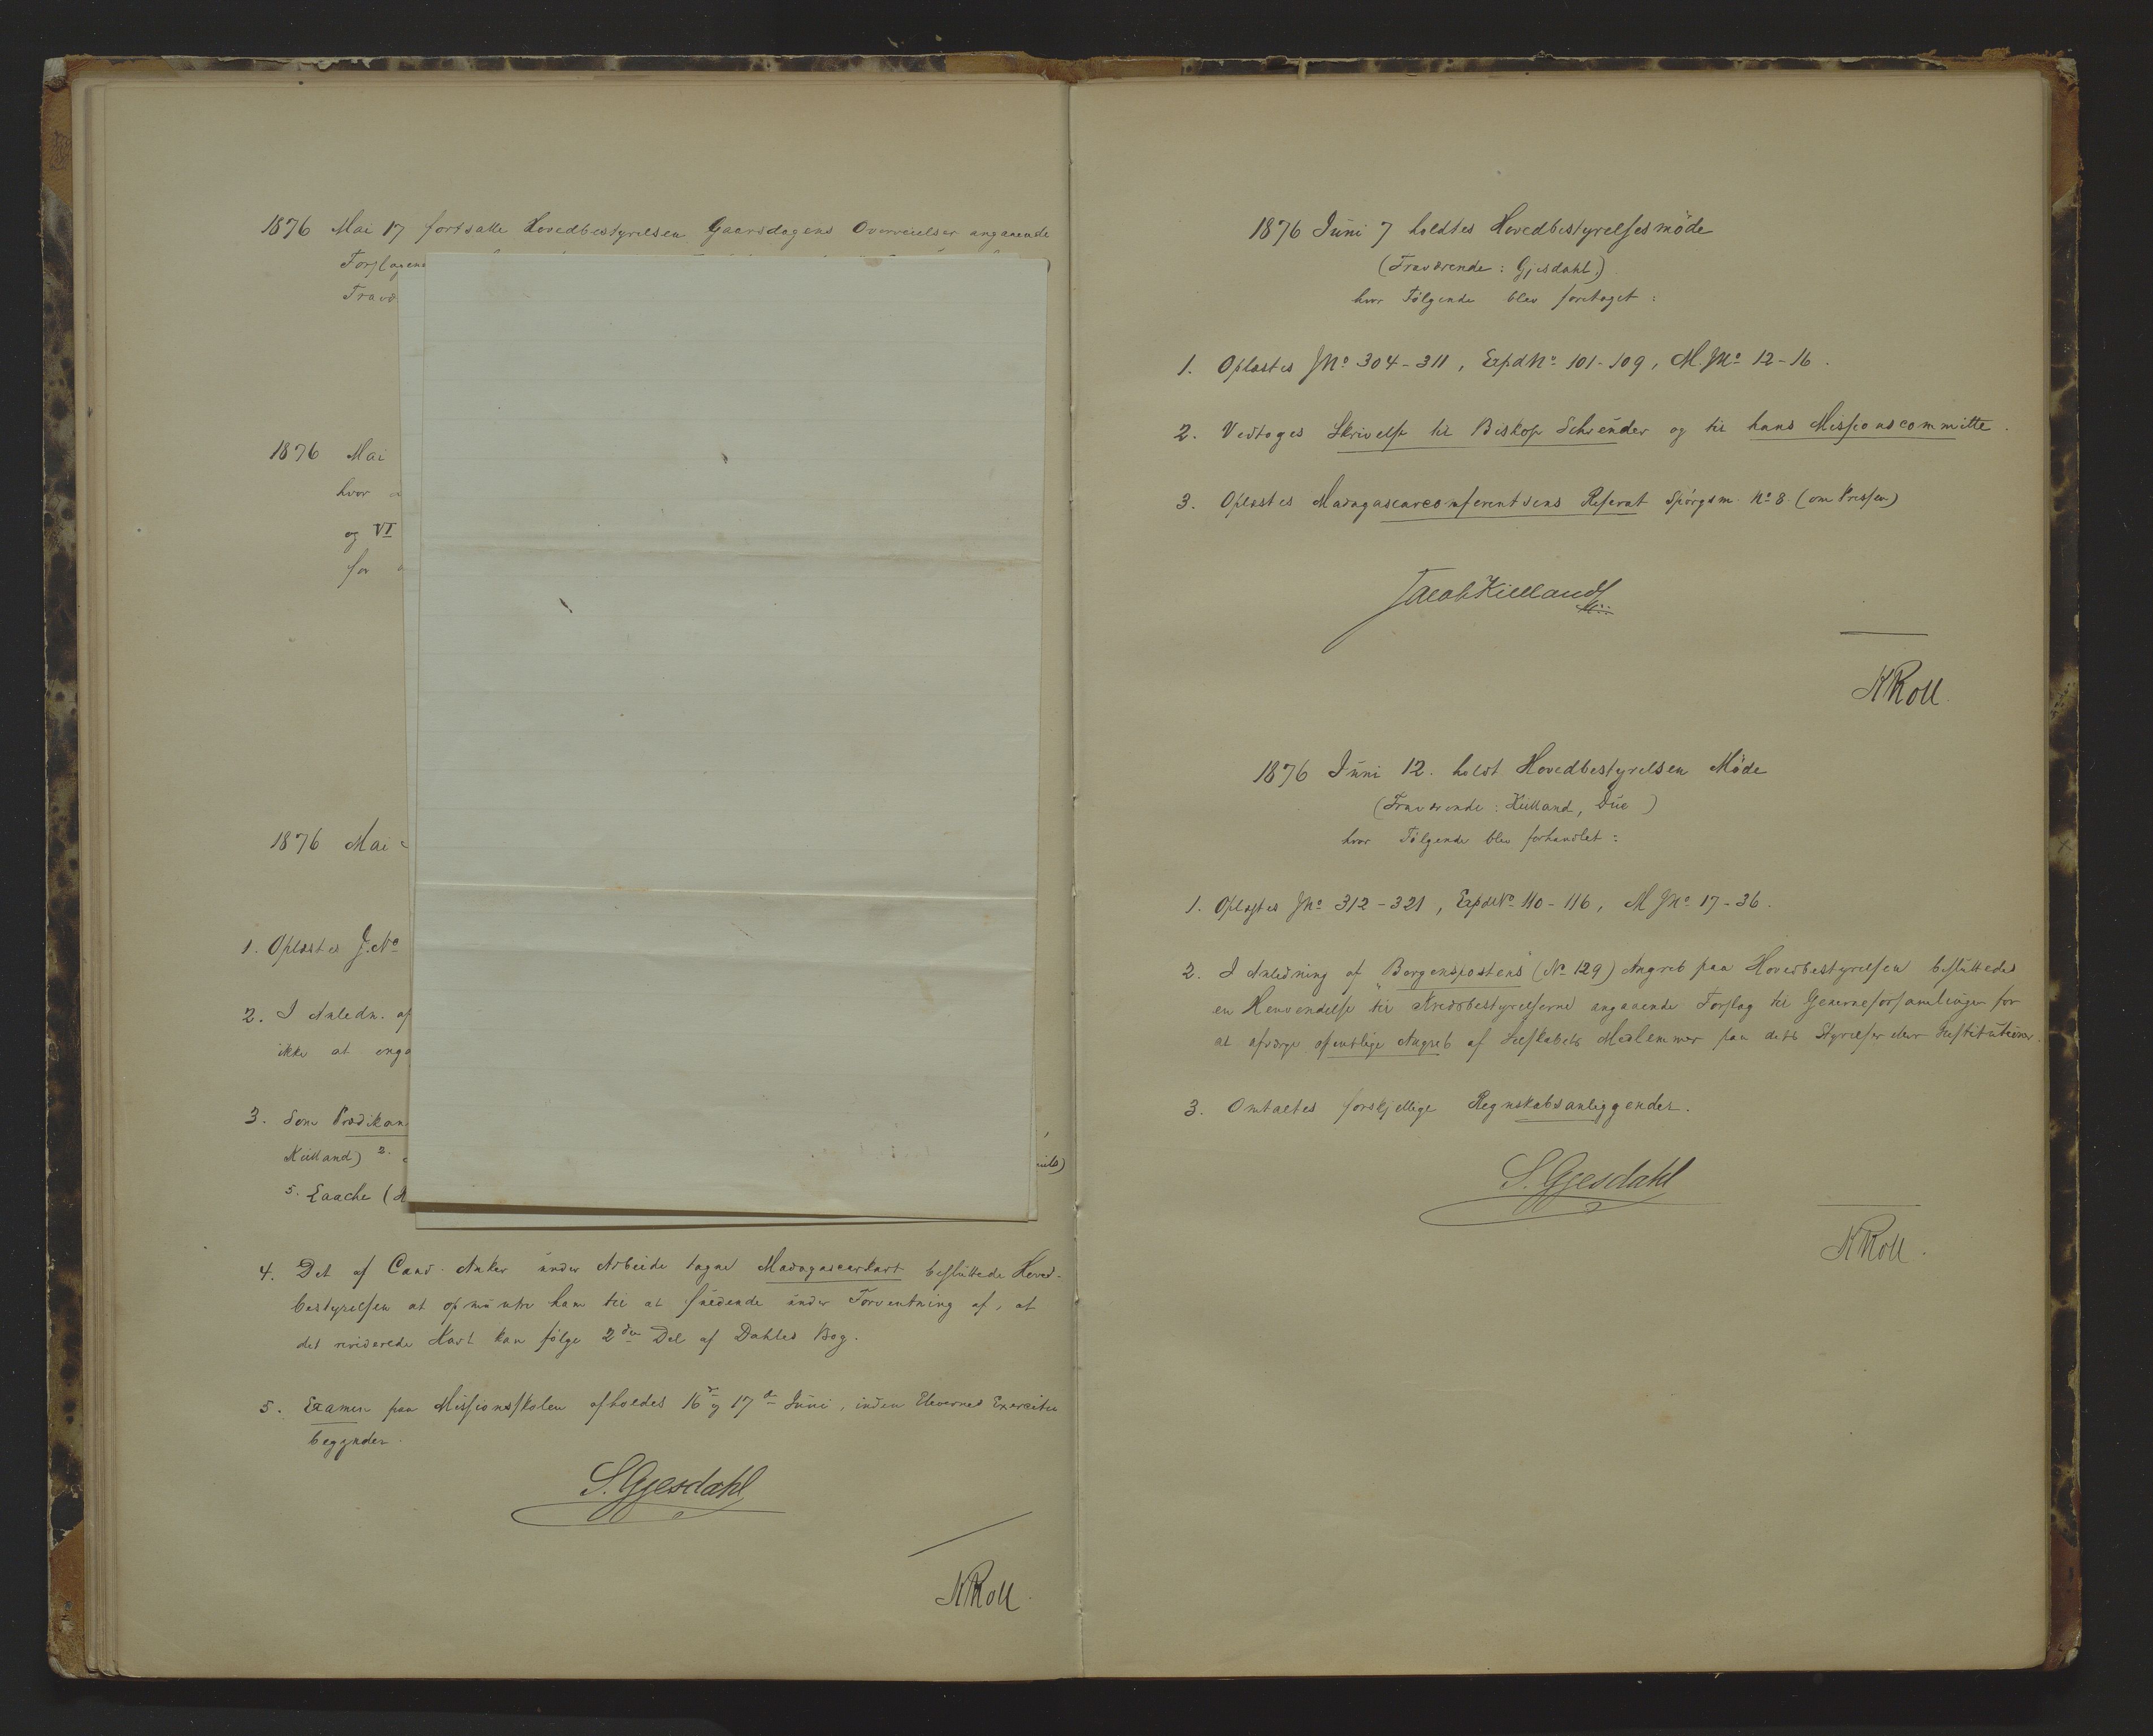 1876 Mai 17 fortsatte Hovedbestyrelsen Gaarsdagens Overveielser angaaende
Forslagene
Fravæ
1876 Mai
hvor
og VI
for
1876 Mai
1. Oplæstes J.No
2. I Anledn. af
ikke at enga
3. Som Prædikan
Kielland) 2.
5. Laache (
4. Det af Cand. Anker under Arbeide tagne Madagascarkart besluttede Hoved-
bestyrelsen at opmuntre ham til at fuldende under Forventning af, at
det reviderede Kart kan følge 2den Del af Dahles Bog.
5. Examen paa Missionsskolen afholdes 16de og 17de Juni, inden Elevernes Exercitie
begynder.
S. Gjesdahl
KRoll.
1876 Juni 7 holdtes Hovedbestyrelsesmöde
(Fraværende: Gjesdahl.)
hvor Fölgende blev foretaget:
1. Oplæstes JNo 304-311, ExpdNo 101-109, M.JNo 12-16.
2. Vedtoges Skrivelse til Biskop Schreuder og til hans Missionscommitte.
3. Oplæstes Madagascarconferentsens Referat Spörgsm. No 8 (om Pressen)
Jacob Kielland
KRoll.
1876 Juni 12. holdt Hovedbestyrelsen Möde
(Fraværende: Kielland, Due)
hvor Fölgende blev forhandlet:
1. Oplæstes JNo 312-321, ExpdNo 110-116, M JNo 17-36.
2. I Anledning af "Bergenspostens" (No 129) Angreb paa Hovedbestyrelsen besluttedes
en Henvendelse til Kredsbestyrelserne angaaende Forslag til Generalforsamlingen for
at afværge offentlige Angreb af Selskabets Medlemmer paa dets Styrelser eller Institutioner.
3. Omtaltes forskjellige Regnskabsanliggender.
S. Gjesdahl
KRoll.